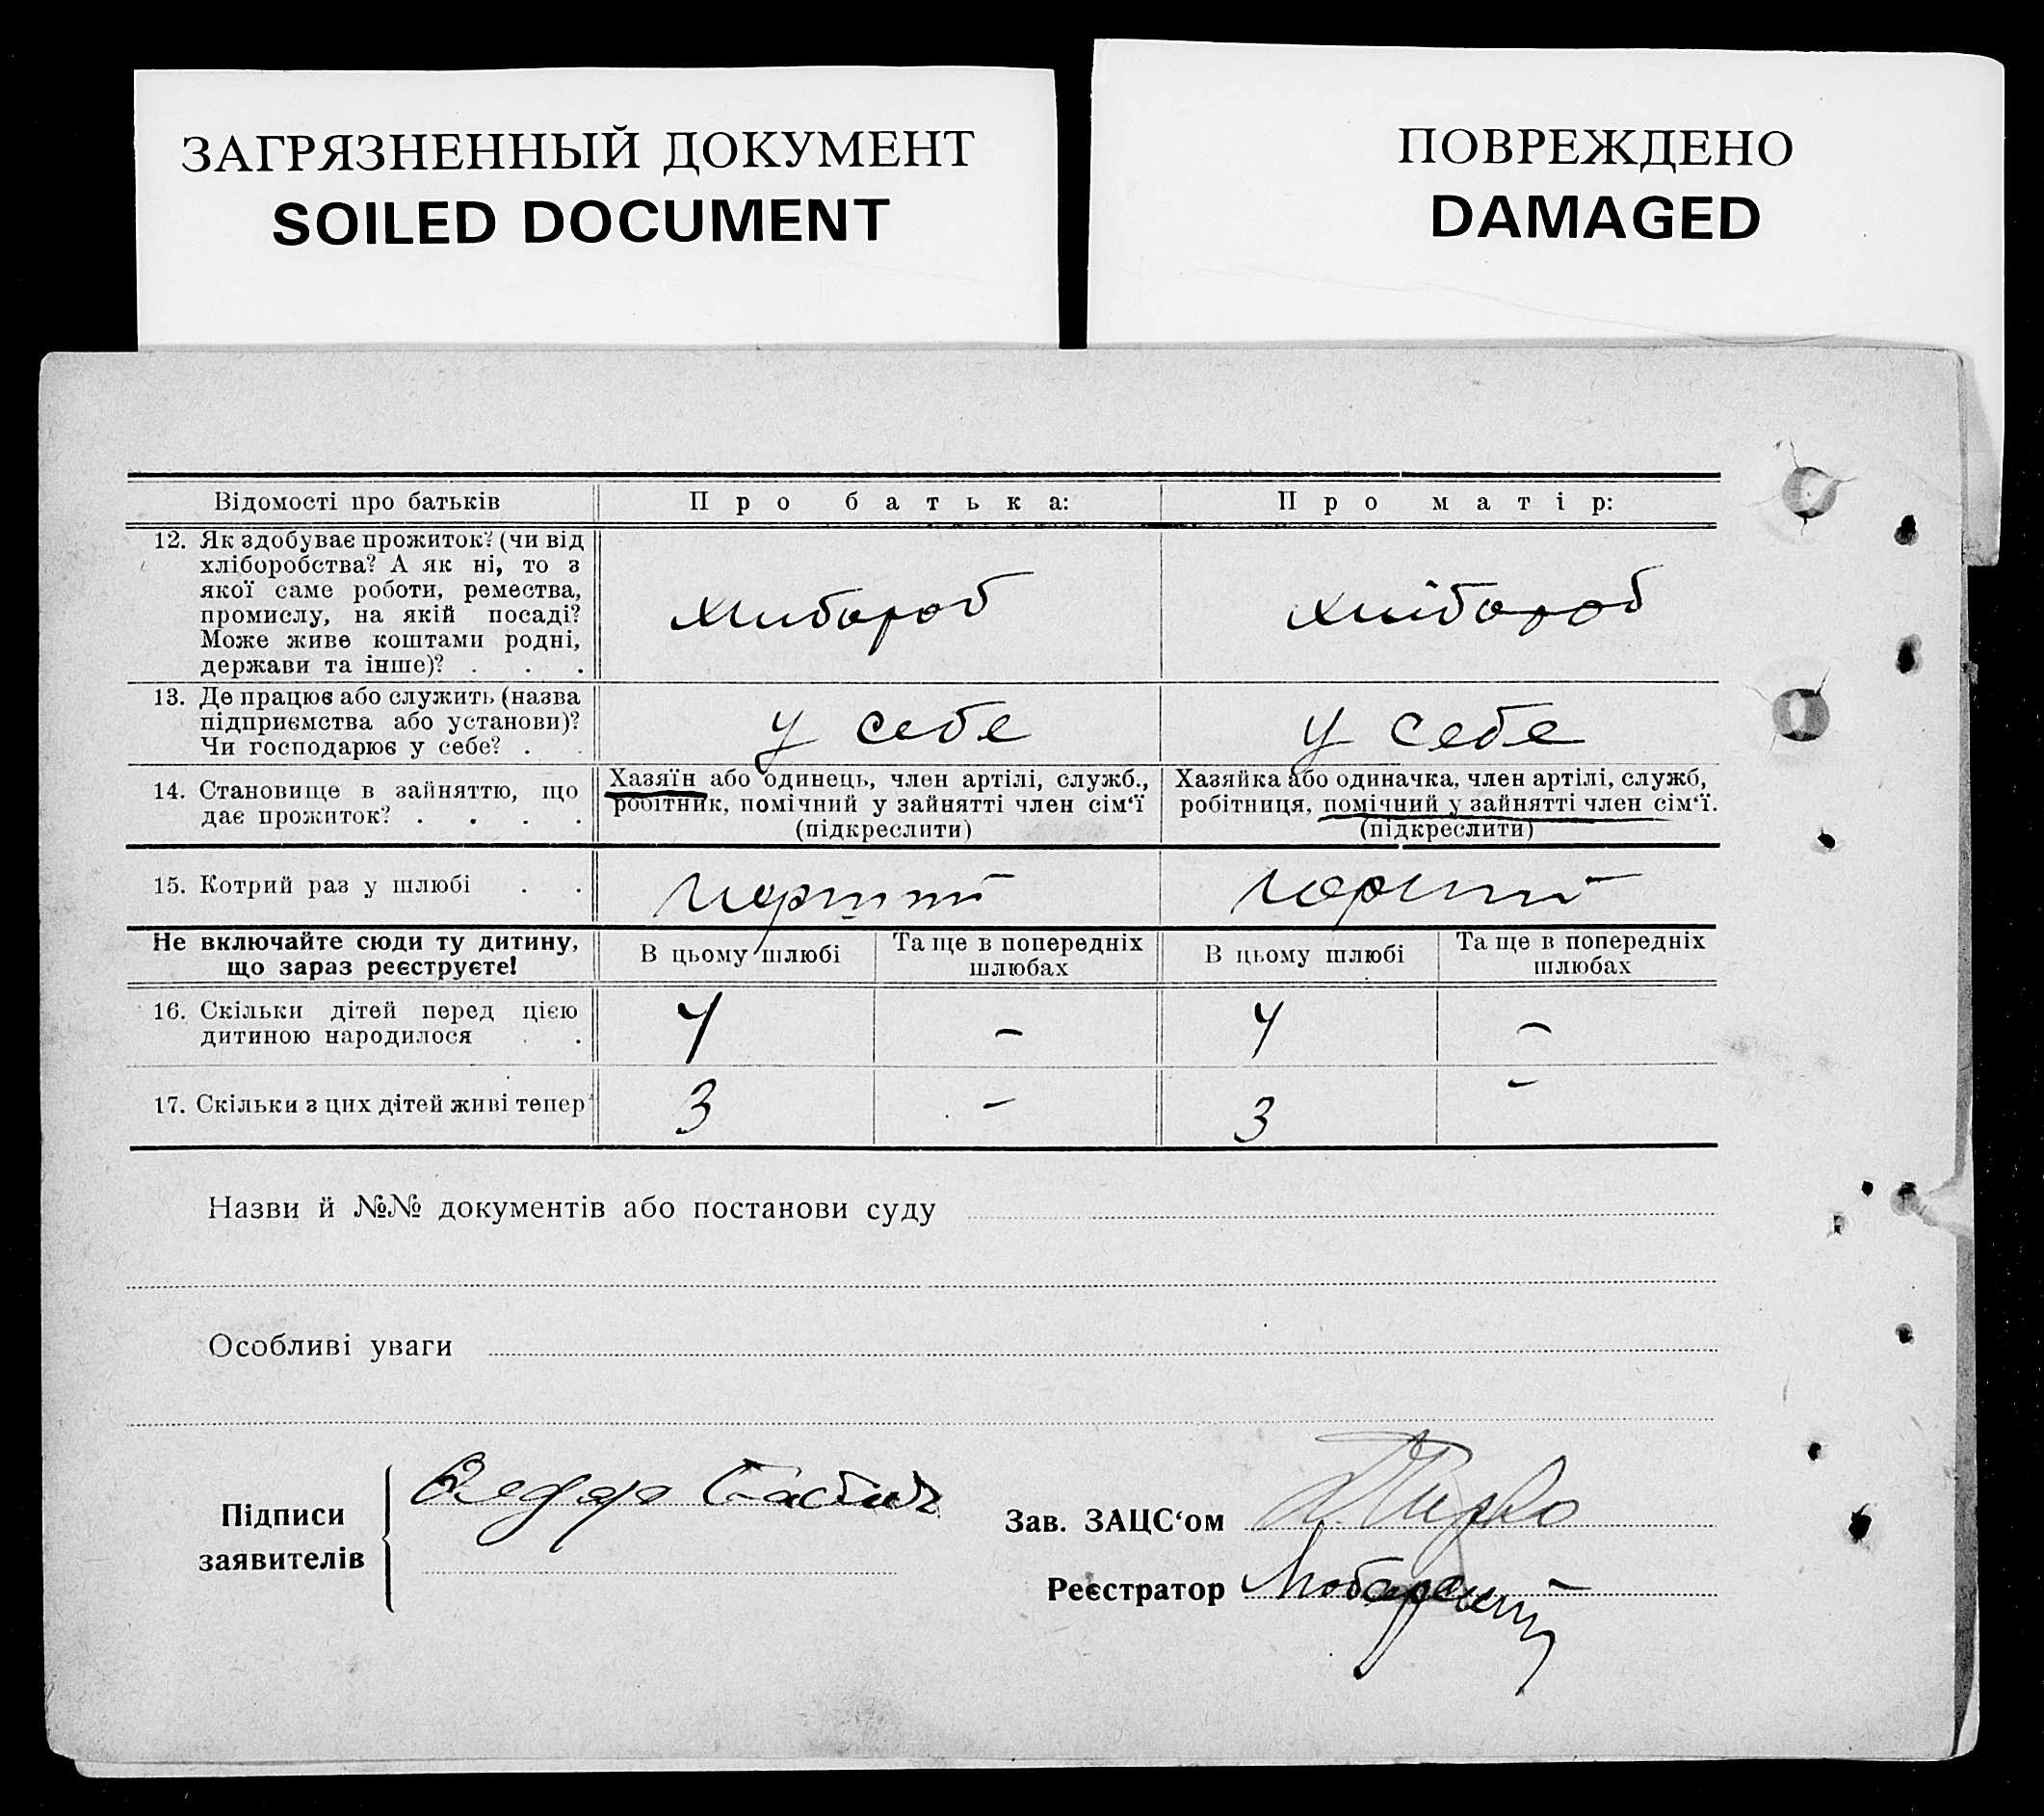 ЗАГРЯЗНЕННЫЙ ДОКУМЕНТ
SOILED DOCUMENT
ПОВРЕЖДЕНО
DAMAGED
Відомості про батьків
Про батька:
Про матір:
12. Як здобуває прожиток? (чи від
хліборобства? А як ні, то з
якої саме роботи, ремества,
промислу, на якій посаді?
Може живе коштами родні,
держави та інше)? . . .
хлибороб
хлибороб
13. Де працює або служить (назва
підприємства або установи)?
Чи господарює у себе? . .
у себе
у себе
14. Становище в зайняттю, що
дає прожиток? . . . .
Хазяїн або одинець, член артілі, служб.,
робітник, помічний у зайнятті член сім‘ї
(підкреслити)
Хазяйка або одиначка, член артілі, служб,
робітниця, помічний у зайнятті член сім‘ї.
(підкреслити)
15. Котрий раз у шлюбі . .
Не включайте сюди ту дитину,
що зараз реєструєте!
В цьому шлюбі
Та ще в попередніх
шлюбах
В цьому шлюбі
Та ще в попередніх
шлюбах
16. Скільки дітей перед цією
дитиною народилося . .
4
-
4
-
17. Скільки з цих дітей живі тепер
3
-
3
-
Назви й №№ документів або постанови суду
Особливі уваги
Підписи
заявителів
Зав. ЗАЦС‘ом
Реєстратор